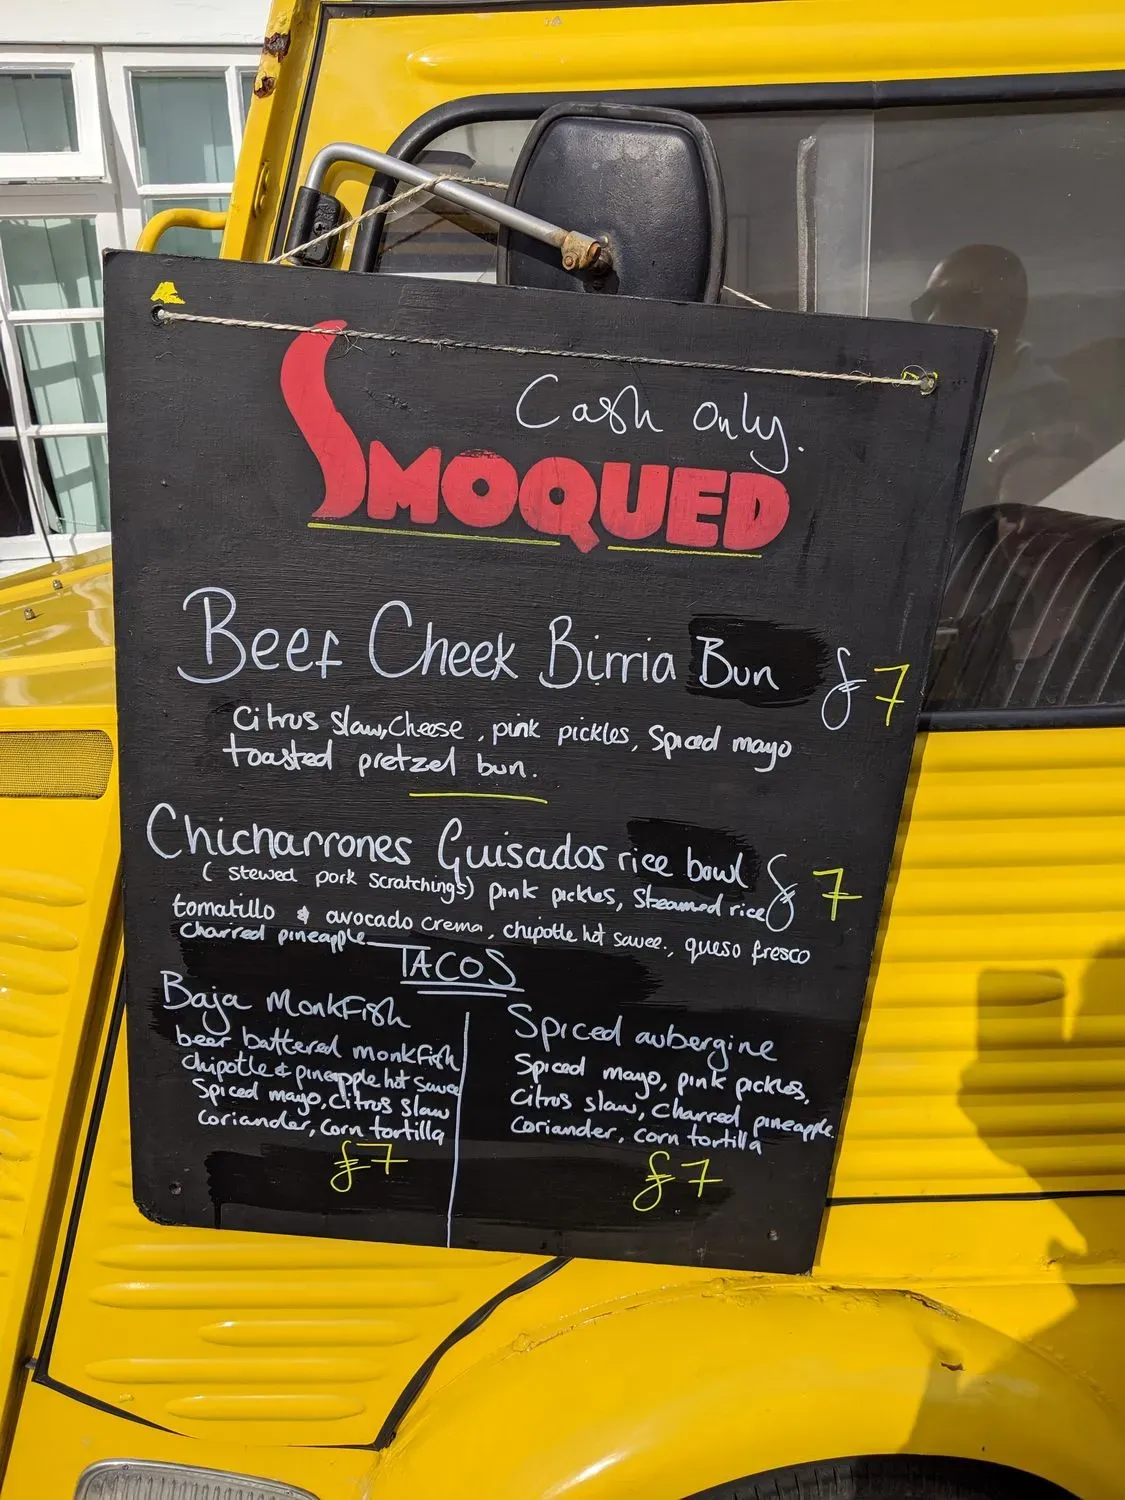 Cash only.
SMOQUED
Beef Cheek Birria Bun £7
Citrus slaw, cheese, pink pickles, Spiced mayo
toasted pretzel bun.
Chicharrones Guisados rice bowl £7
(stewed pork scratchings) pink pickles, steamed rice
tomatillo & avocado crema, chipotle hot sauce, queso fresco
charred pineapple
TACOS
Baja Monkfish
beer battered monkfish
chipotle & pineapple hot sauce
Spiced mayo, citrus slaw
coriander, corn tortilla
£7
Spiced aubergine
Spiced mayo, pink pickles,
citrus slaw, charred pineapple.
coriander, corn tortilla
£7